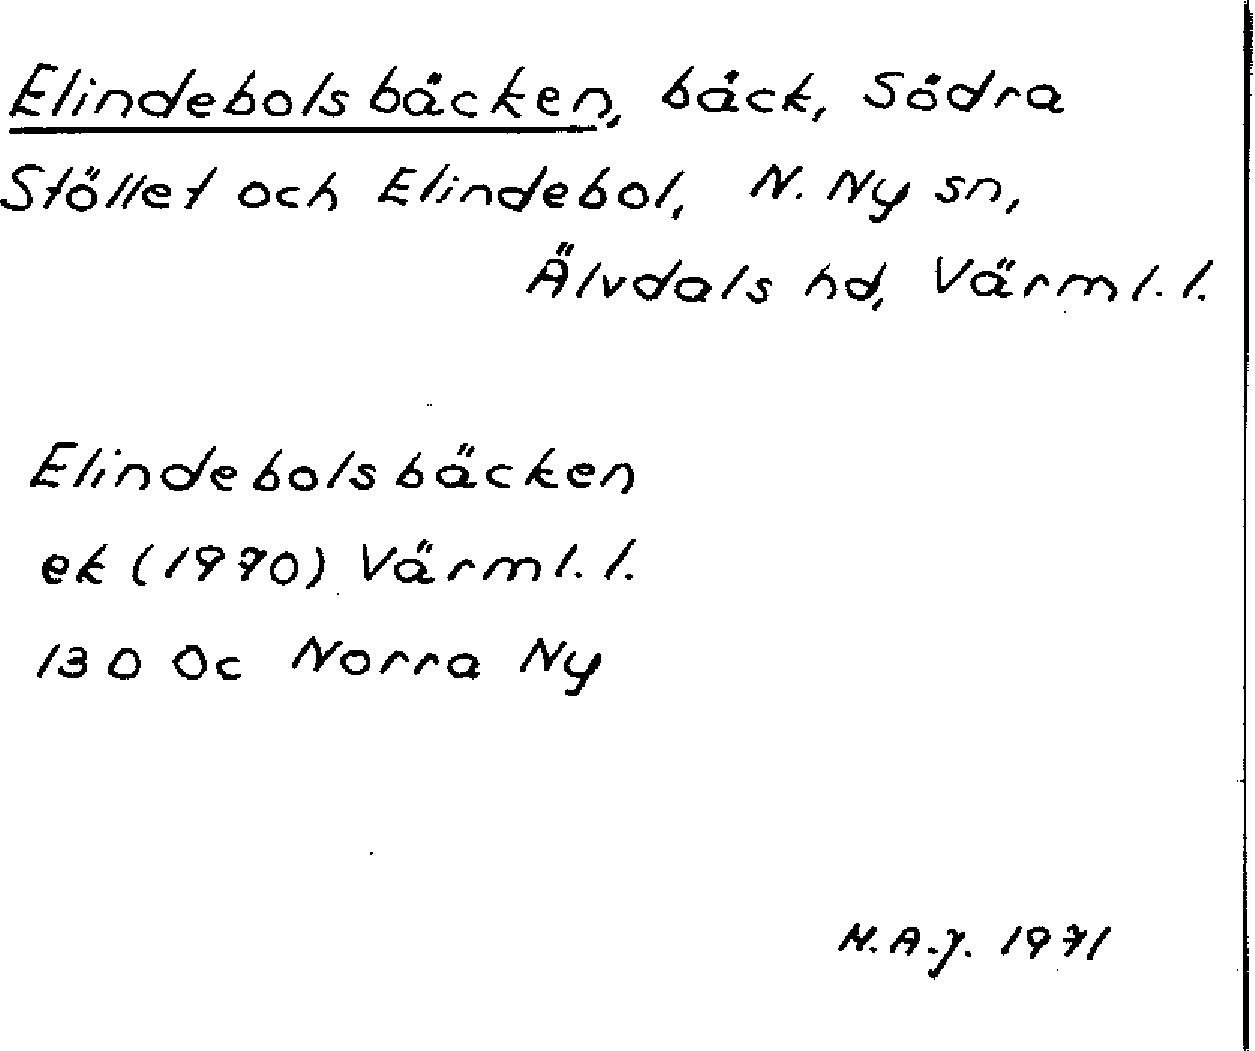 Elindebolsbäcken, bäck, Södra
Stöllet och Elindebol, N. Ny sn,
Älvdals hd, Värml. l.
Elindebolsbäcken
ek (1970) Värml. l.
130 Oc Norra Ny
N.A.J. 1971